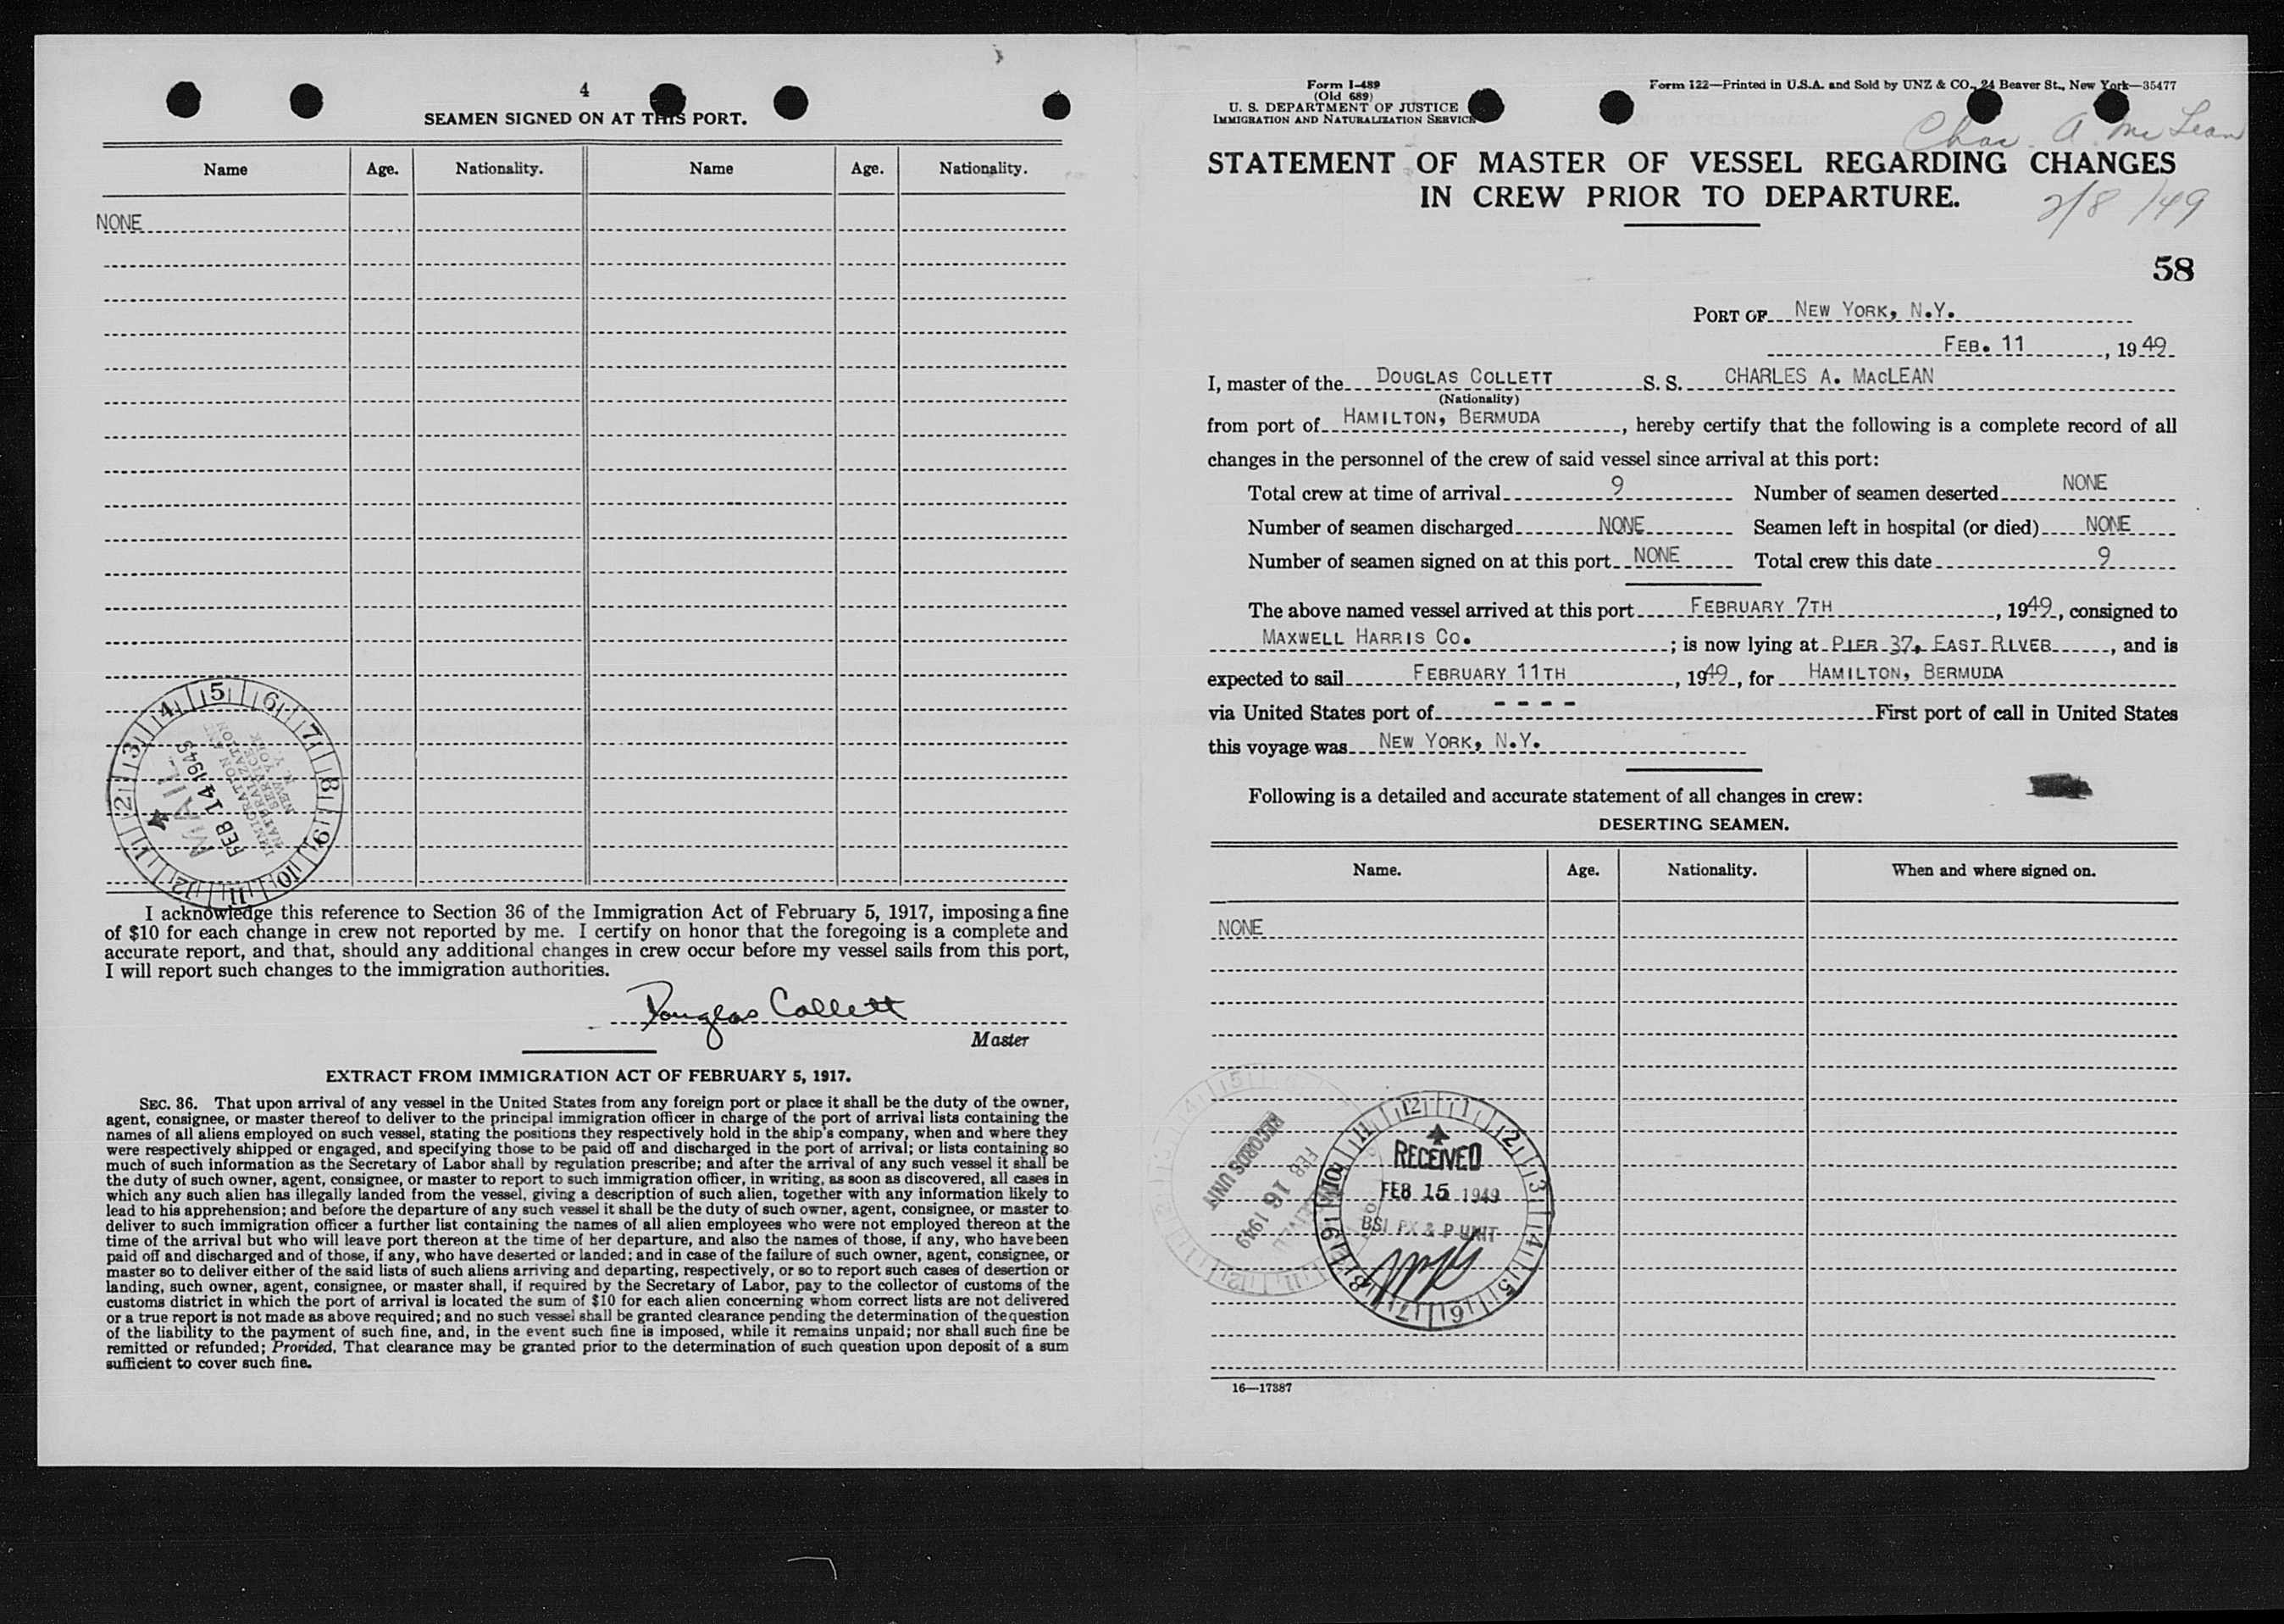 4
SEAMEN SIGNED ON AT THIS PORT.
Name Age. Nationality. Name Age. Nationality.
NONE
5 6 7 8 9 10 11 12 1 2 3 4
MAIL
FEB 14 1949
IMMIGRATION AND
NATURALIZATION
SERVICE
NEW YORK
N. Y.
I acknowledge this reference to Section 36 of the Immigration Act of February 5, 1917, imposing a fine
of $10 for each change in crew not reported by me. I certify on honor that the foregoing is a complete and
accurate report, and that, should any additional changes in crew occur before my vessel sails from this port,
I will report such changes to the immigration authorities.
Douglas Collett
Master
EXTRACT FROM IMMIGRATION ACT OF FEBRUARY 5, 1917.
SEC. 36. That upon arrival of any vessel in the United States from any foreign port or place it shall be the duty of the owner,
agent, consignee, or master thereof to deliver to the principal immigration officer in charge of the port of arrival lists containing the
names of all aliens employed on such vessel, stating the positions they respectively hold in the ship's company, when and where they
were respectively shipped or engaged, and specifying those to be paid off and discharged in the port of arrival; or lists containing so
much of such information as the Secretary of Labor shall by regulation prescribe; and after the arrival of any such vessel it shall be
the duty of such owner, agent, consignee, or master to report to such immigration officer, in writing, as soon as discovered, all cases in
which any such alien has illegally landed from the vessel, giving a description of such alien, together with any information likely to
lead to his apprehension; and before the departure of any such vessel it shall be the duty of such owner, agent, consignee, or master to
deliver to such immigration officer a further list containing the names of all alien employees who were not employed thereon at the
time of the arrival but who will leave port thereon at the time of her departure, and also the names of those, if any, who have been
paid off and discharged and of those, if any, who have deserted or landed; and in case of the failure of such owner, agent, consignee, or
master so to deliver either of the said lists of such aliens arriving and departing, respectively, or so to report such cases of desertion or
landing, such owner, agent, consignee, or master shall, if required by the Secretary of Labor, pay to the collector of customs of the
customs district in which the port of arrival is located the sum of $10 for each alien concerning whom correct lists are not delivered
or a true report is not made as above required; and no such vessel shall be granted clearance pending the determination of the question
of the liability to the payment of such fine, and, in the event such fine is imposed, while it remains unpaid; nor shall such fine be
remitted or refunded; Provided, That clearance may be granted prior to the determination of such question upon deposit of a sum
sufficient to cover such fine.
Form I-489
(Old 689)
U. S. DEPARTMENT OF JUSTICE
IMMIGRATION AND NATURALIZATION SERVICE
Form 122—Printed in U.S.A. and Sold by UNZ & CO., 24 Beaver St., New York—35477
Chas. A. McLean
STATEMENT OF MASTER OF VESSEL REGARDING CHANGES
IN CREW PRIOR TO DEPARTURE.
2/8/49
58
PORT OF NEW YORK, N.Y.
FEB. 11, 1949
I, master of the DOUGLAS COLLETT S. S. CHARLES A. MACLEAN
(Nationality)
from port of HAMILTON, BERMUDA, hereby certify that the following is a complete record of all
changes in the personnel of the crew of said vessel since arrival at this port:
Total crew at time of arrival 9 Number of seamen deserted NONE
Number of seamen discharged NONE Seamen left in hospital (or died) NONE
Number of seamen signed on at this port NONE Total crew this date 9
The above named vessel arrived at this port FEBRUARY 7TH, 1949, consigned to
MAXWELL HARRIS CO.; is now lying at PIER 37, EAST RIVER, and is
expected to sail FEBRUARY 11TH, 1949, for HAMILTON, BERMUDA
via United States port of - - - - First port of call in United States
this voyage was NEW YORK, N.Y.
Following is a detailed and accurate statement of all changes in crew:
DESERTING SEAMEN.
Name. Age. Nationality. When and where signed on.
NONE
RECORDS UNIT
FEB 16 1949
RECEIVED
12 1 2 3 4 5 6 7 8 9 10 11
RECEIVED
FEB 15 1949
BSI PX & P UNIT
16—17387